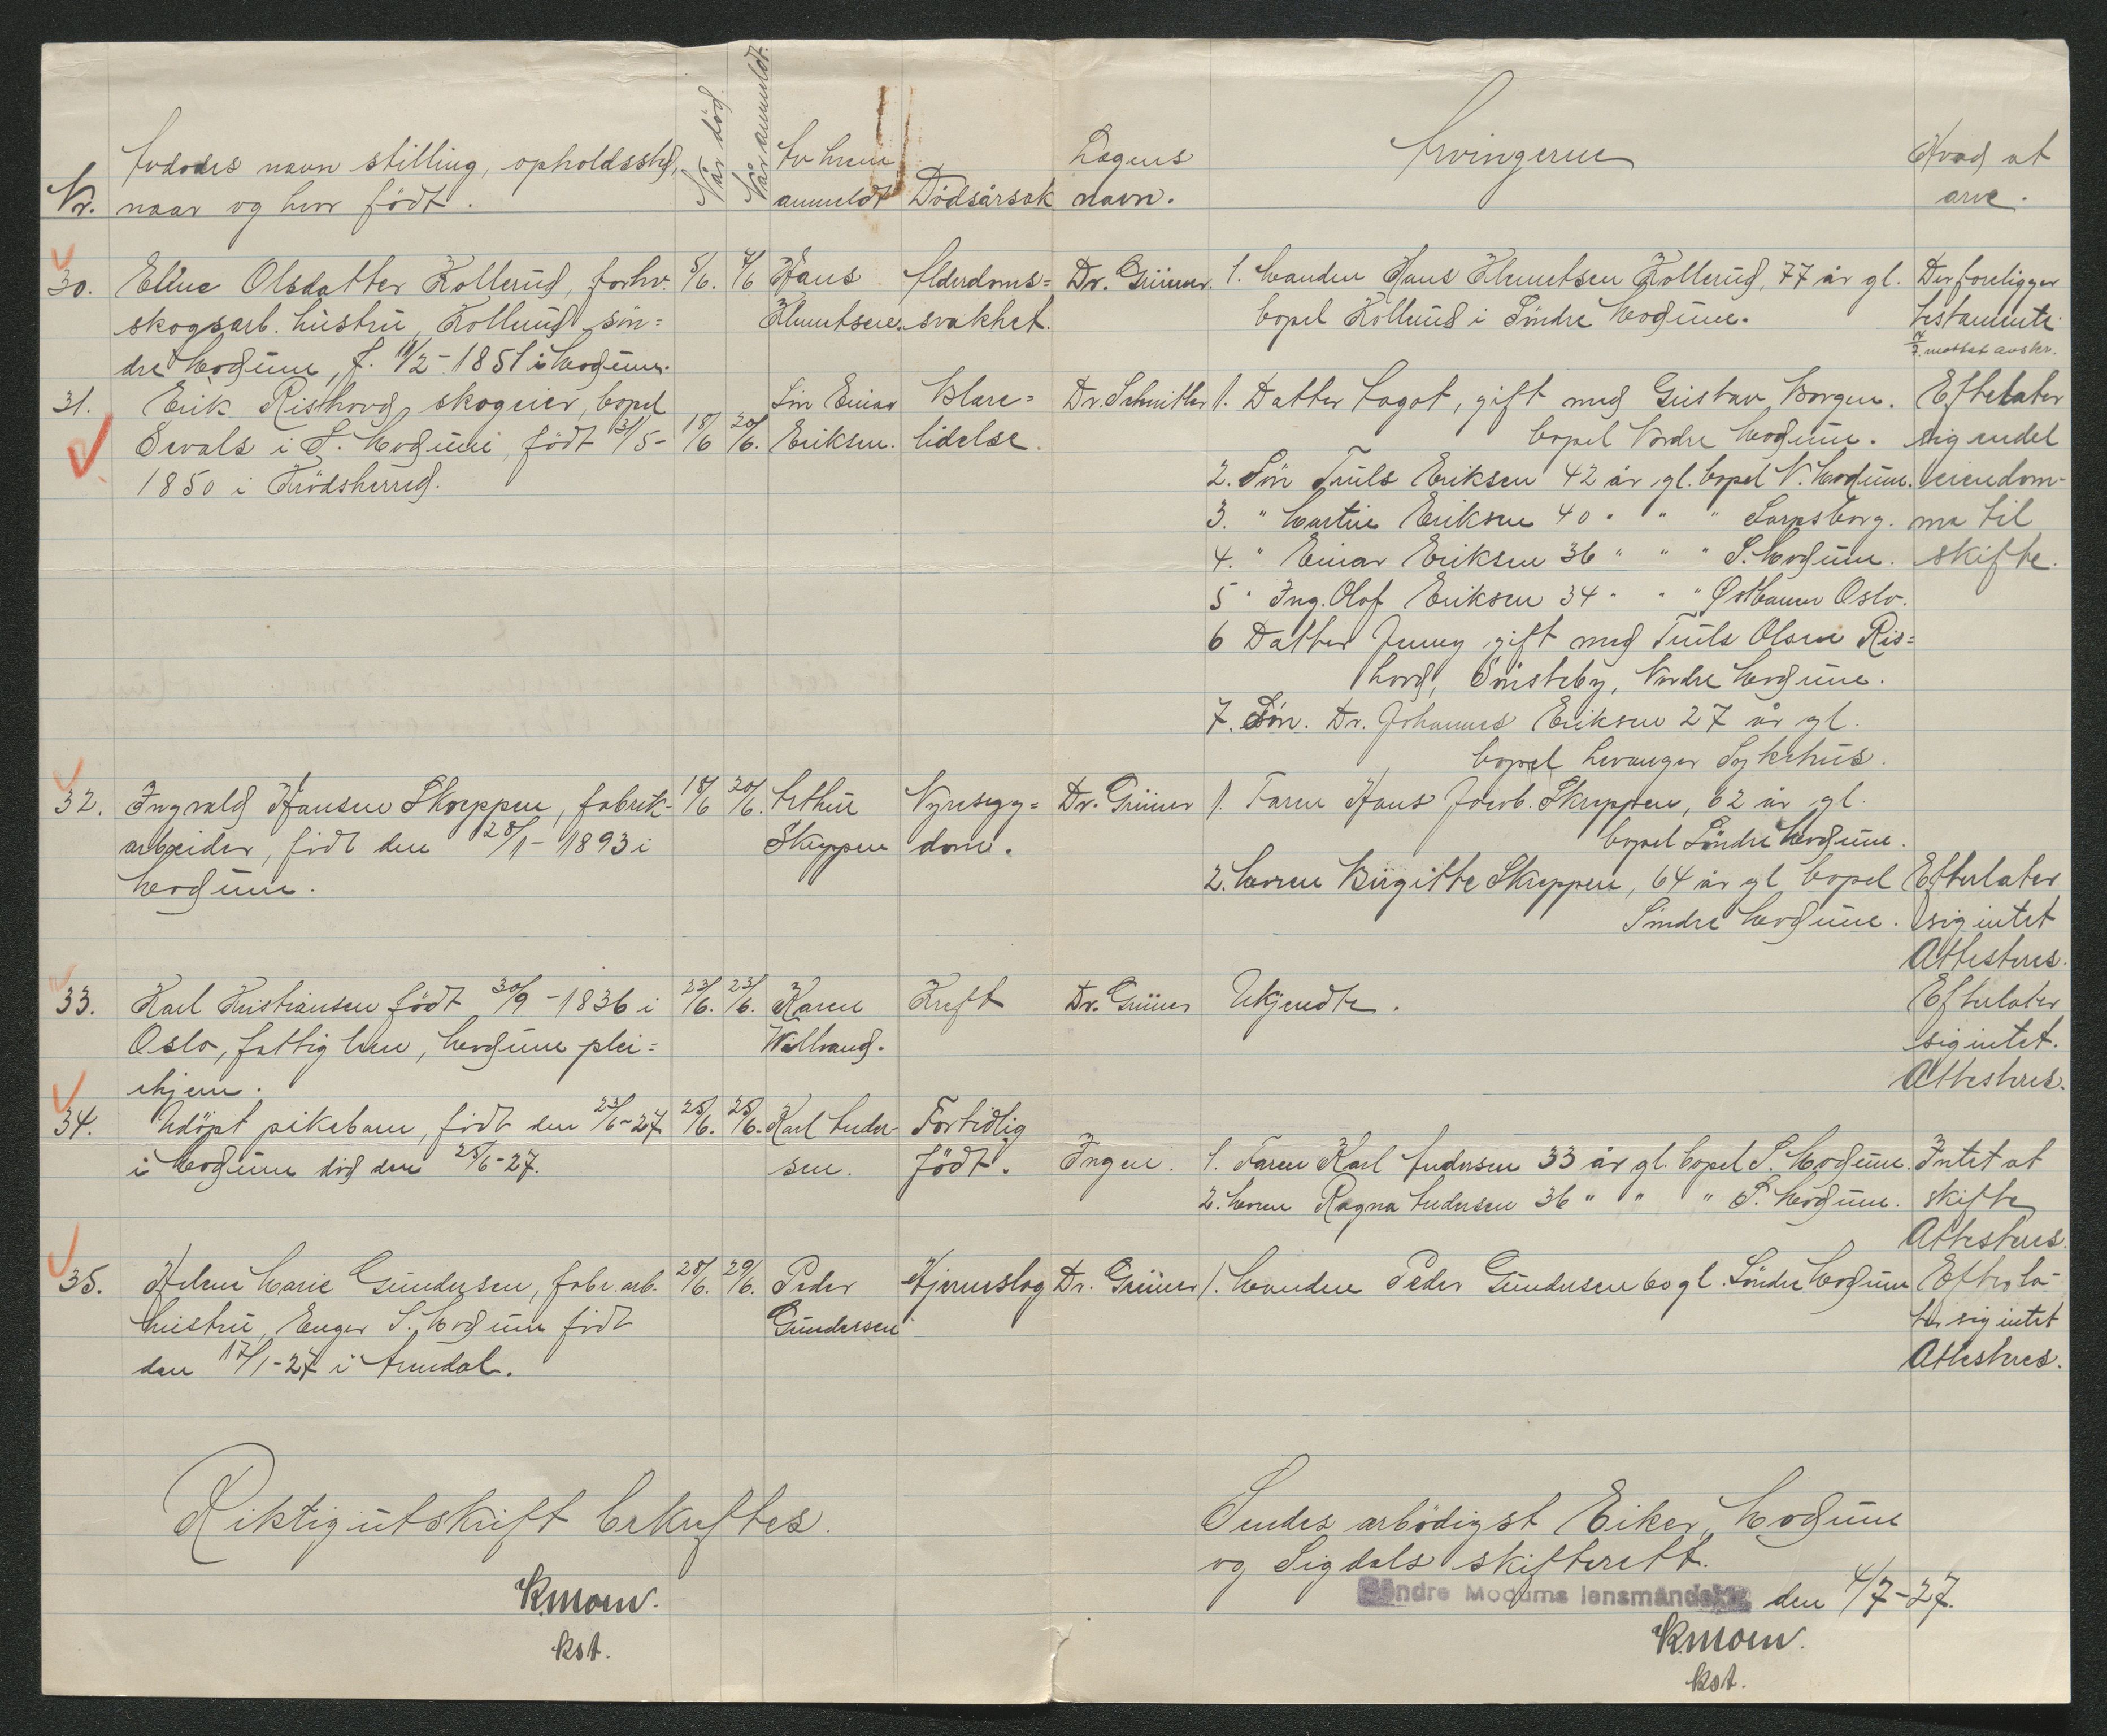 Avdødes navn stilling, opholdssted,
Nr. naar og hvor født.
Når død.
Når anmeldt.
Av hvem
anmeldt
Dödsårsak
Lægens
navn.
Arvingerne
Hvad at
arve.
30. Elline Olsdatter Kollerud, forhv. 5/6. 7/6 Hans Alderdoms= Dr. Grüner. 1. Manden Hans Klemetsen Kollerud, 77 år gl. Der foreligger
skogsarb. hustru, Kollerud sön= Klemetsen. svakhet. bopel Kollerud i Söndre Modum. testamente
dre Modum, f. 11/2-1851 i Modum. mottat avskr.
31. Erik Rishovd, skogeier, bopel Sön Einar Blære= Dr. Schnitler 1. Datter Aagot, gift med Gustav Borgen. Efterlater
Sevals i S. Modum, født 3/5- 18/6 20/6. Eriksen. lidelse. bopel Nordre Modum. sig endel
1850 i Krödsherred. 2. Sön Truls Eriksen 42 år gl. bopel N. Modum. eiendom-
3. " Martin Eriksen 40 " " " Sarpsborg. me til
4. " Einar Eriksen 36 " " " S. Modum. skifte.
5 " Ing. Olaf Eriksen 34 " " " Østbanen Oslo.
6 Datter Jenny gift med Truls Olsen Ris=
hovd, Sönsteby, Nordre Modum.
7. Sön. Dr. Johannes Eriksen 27 år gl.
bopel Levanger Sykehus.
32. Ingvald Hansen Skreppen, fabrik- 18/6 20/6. Arthur Nyresyg= Dr. Grüner 1. Faren Hans Jacob. Skreppen, 62 år gl.
arbeider, födt den 28/1-1893 i Skreppen dom. bopel Söndre Modum.
Modum. 2. Moren Birgitte Skreppen, 64 år gl bopel Efterlater
Söndre Modum. sig intet
Attesteres.
33. Karl Kristiansen født 30/9-1836 i 23/6. 23/6. Karen Kreft Dr. Grüner Ukjendte. Efterlater
Oslo, fattiglem, Modum plei= Willrand. sig intet.
ehjem. Attesteres.
34. Udöpt pikebarn, födt den 23/6-27 25/6. 25/6. Karl Ander- Fortidlig
i Modum död den 25/6-27. sen. födt. Ingen. 1. Faren Karl Andersen 33 år gl. bopel S. Modum. Intet at
2. Moren Ragna Andersen 36 " " " S. Modum. skifte
Attesteres.
35. Helene Marie Gundersen, fabr. arb. 28/6. 29/6. Peder Hjerneslag Dr. Grüner 1. Manden Peder Gundersen 60 gl. Söndre Modum Efterla-
hustru, Enger S. Modum födt Gundersen ter sig intet
den 17/1-27 i Arendal. Attesteres.
Riktig utskrift bekreftes.
K. Moen.
kst.
Sendes ærbödigst Eiker, Modum
og Sigdals skifterett.
Søndre Modums lensmandsktr. den 4/7-27.
K. Moen.
kst.